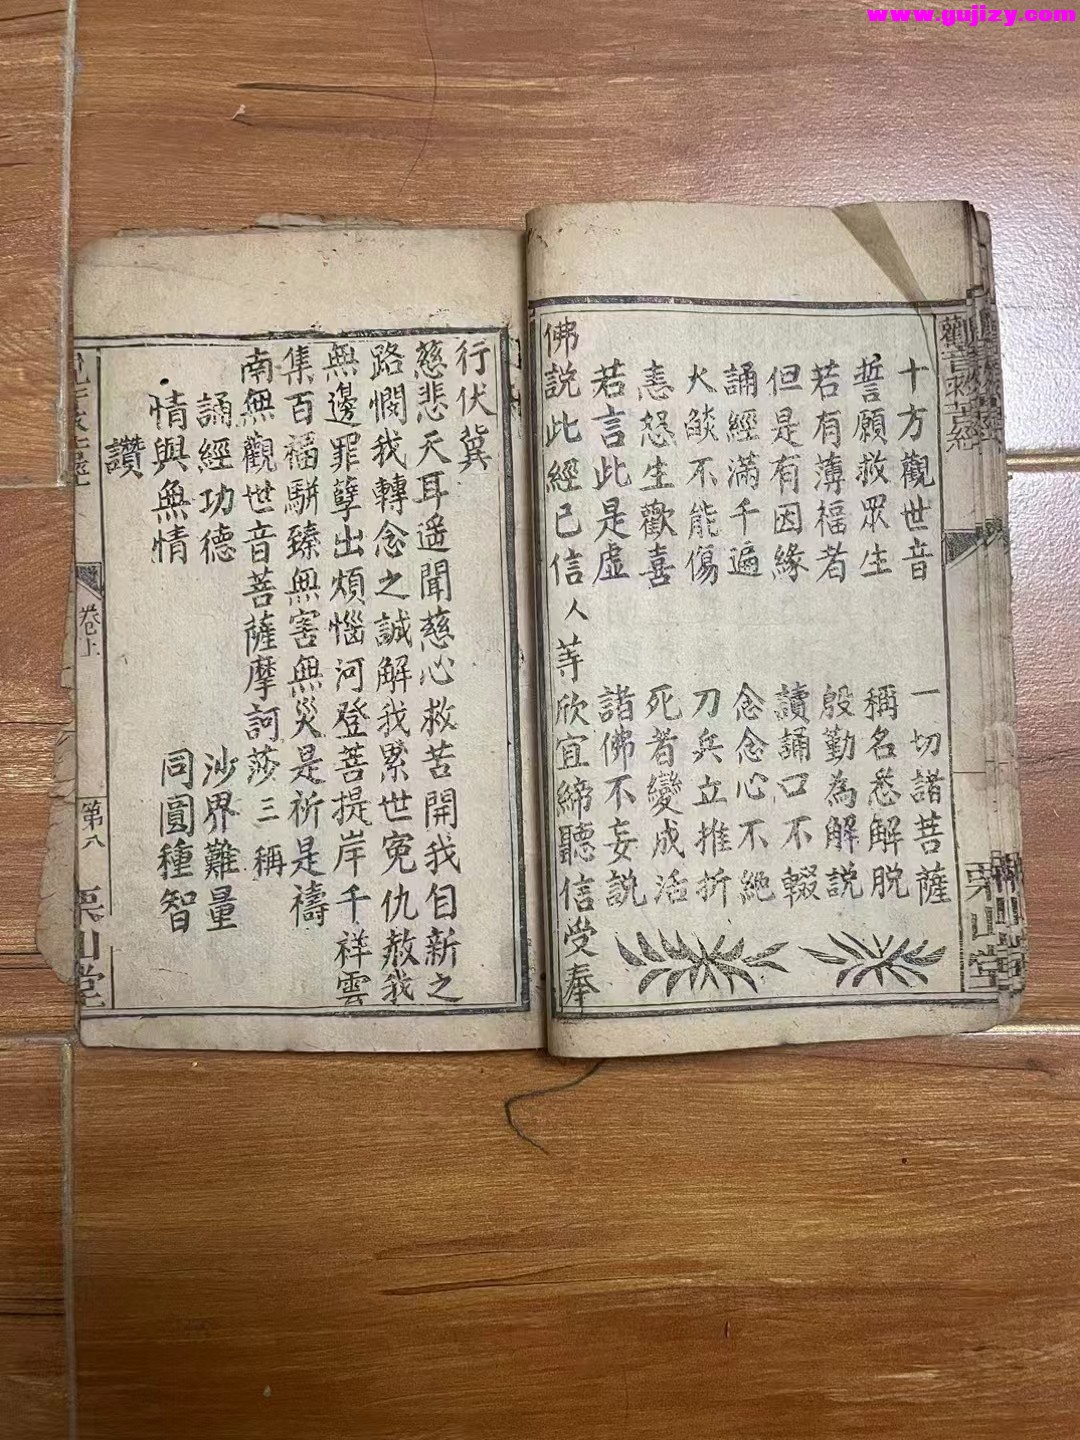 www.gujizy.com
觀音救苦經
栗山堂
十方觀世音　一切諸菩薩
誓願救眾生　稱名悉解脫
若有薄福者　殷勤為解說
但是有因緣　讀誦口不輟
誦經滿千遍　念念心不絶
火燄不能傷　刀兵立推折
恚怒生歡喜　死者變成活
若言此是虛　諸佛不妄說
佛說此經已信人等欣宜締聽信受奉
行伏冀
慈悲天耳遥聞慈心救苦開我自新之
路憫我轉念之誠解我累世寃仇赦我
無邊罪孽出煩惱河登菩提岸千祥雲
集百福駢臻無害無災是祈是禱
南無觀世音菩薩摩訶莎三稱
誦經功德　沙界難量
情與無情　同圓種智
讚
卷上
第八
栗山堂